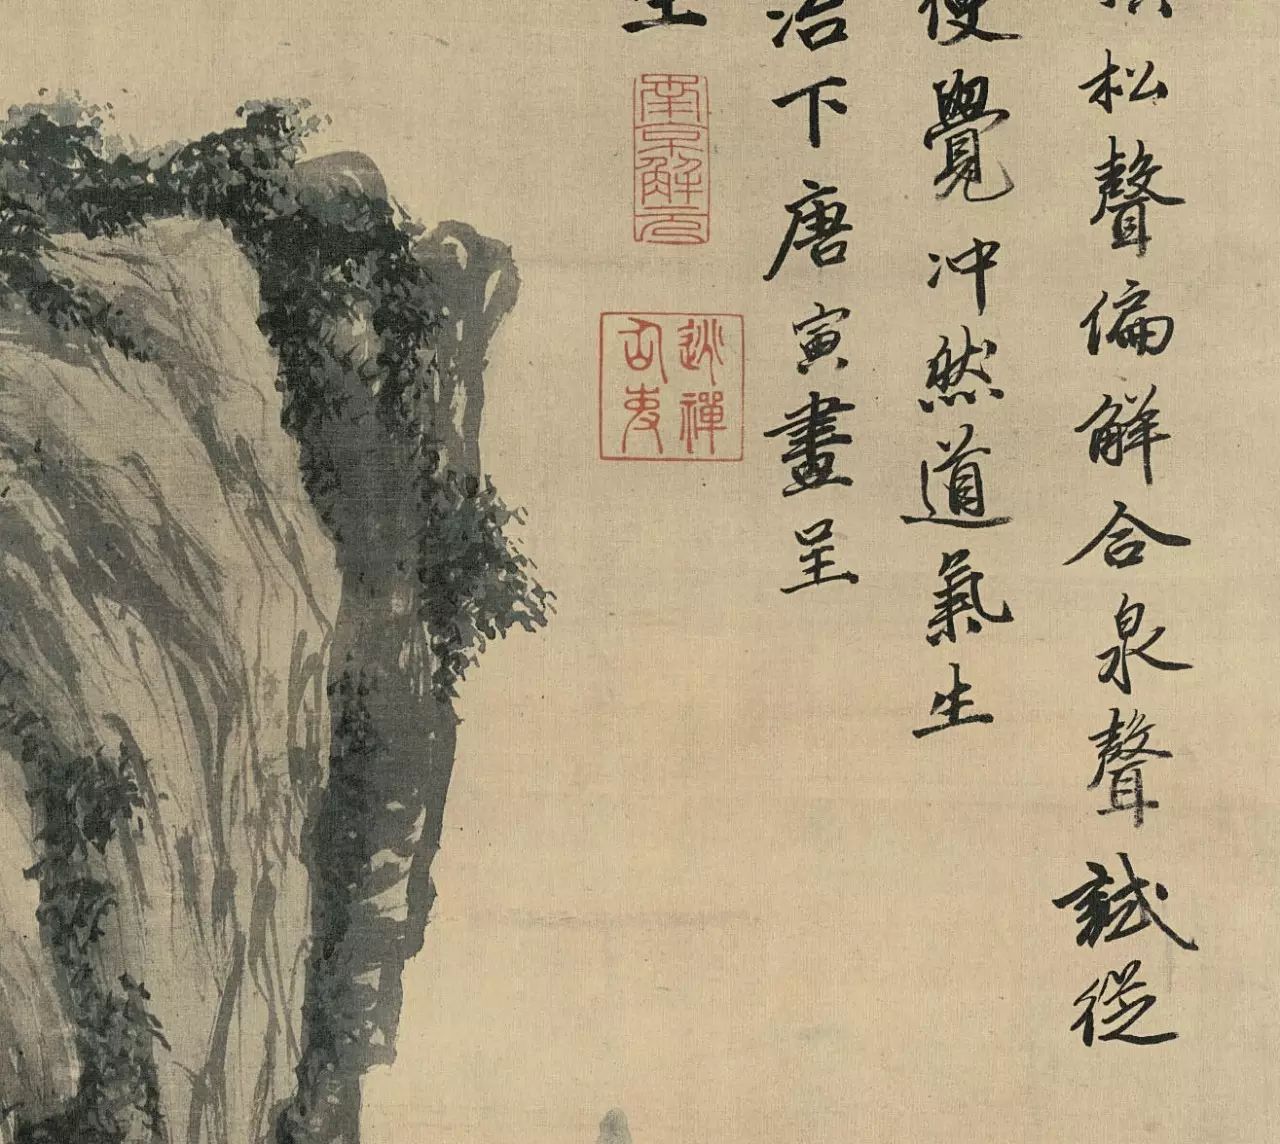 松聲偏解合泉聲試從
便覺冲然道氣生
治下唐寅畫呈
生
南京解元
逃禪仙吏